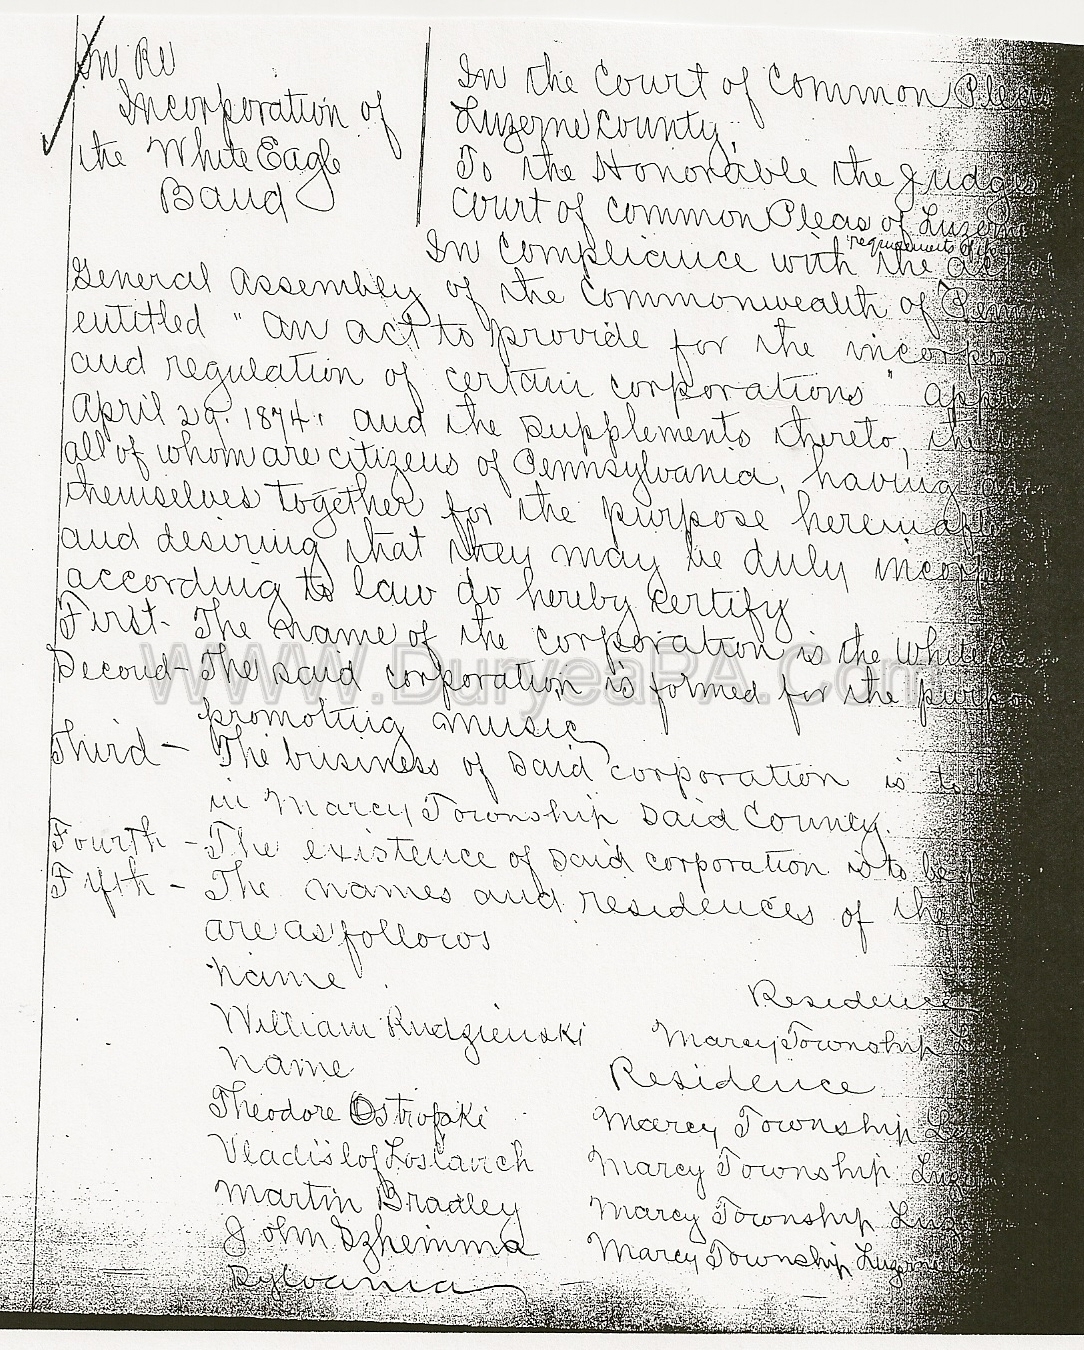 In Re
Incorporation of
the White Eagle
Band
In the Court of Common Pleas
Luzerne County.
To the Honorable the Judges
Court of Common Pleas of Luzerne
In Compliance with the requirements of the act of
General Assembly of the Commonwealth of Penn
entitled "An act to provide for the incorpor
and regulation of certain corporations" app
April 29. 1874. and the supplements thereto, the
all of whom are citizens of Pennsylvania, having
themselves together for the purpose hereinafter
and desiring that they may be duly incorp
according to law do hereby certify
First - The name of the corporation is the White
Second - The said corporation is formed for the purpo
promoting music
Third - The business of said corporation is to be
in Marcy Township said County.
Fourth - The existence of said corporation is to be
Fifth - The names and residences of the
are as follows
Name
Residence
William Rudzienski Marcy Township
Name
Residence
Theodore Ostrofski Marcy Township
Vladislof Loslavich Marcy Township Luz
Martin Bradley Marcy Township Luz
John Dzhemma Marcy Township Luzerne
sylvania
WWW.DuryeaPA.Com